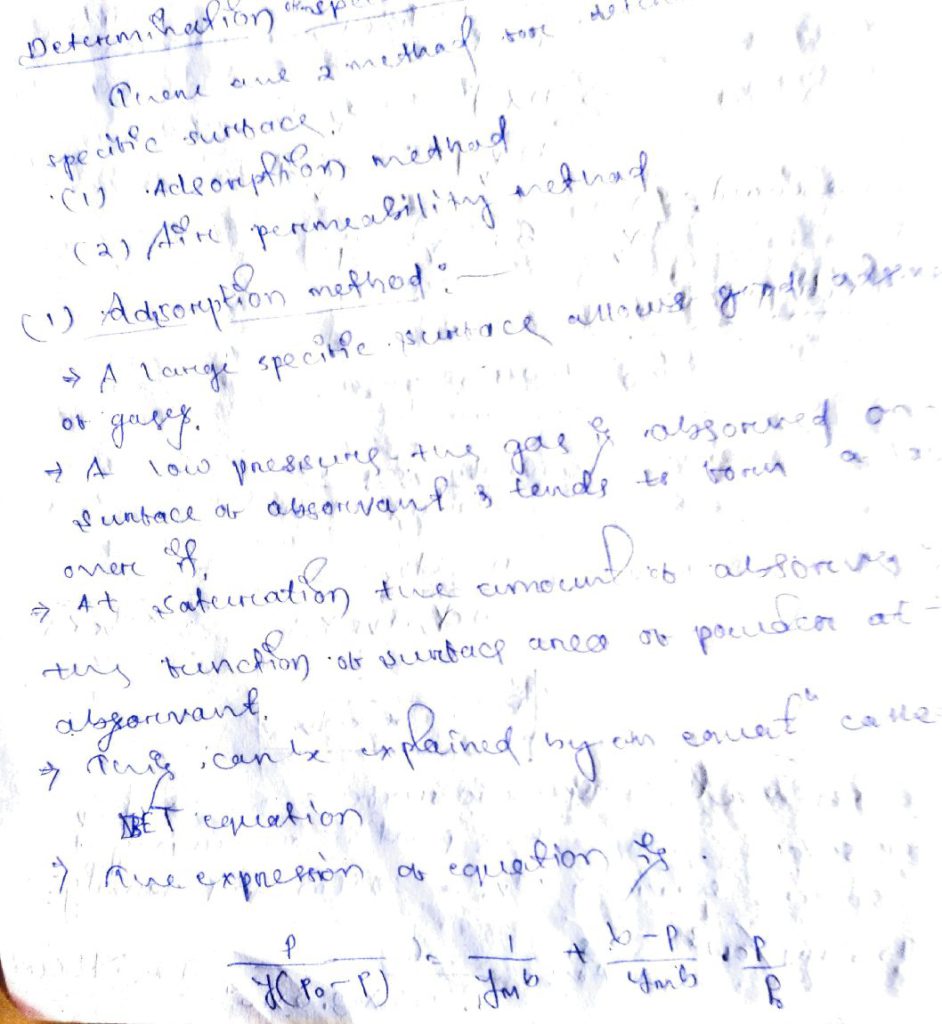 Determination
There are 2 method for
specific surface.
(1) Adsorption method
(2) Air permeability method
(1) Adsorption method :—
→ A large specific surface allows good
of gases.
→ A low pressure the gas is absorved on
surface of absorvant & tends to form a
over it.
→ At saturation the amount of absorved
this function of surface area of powder at
absorvant.
→ This can be explained by an equatn calle
BET equation
→ The expression of equation is.
P/y(P₀-P) = 1/yₘb + b-P/yₘb · P/P₀